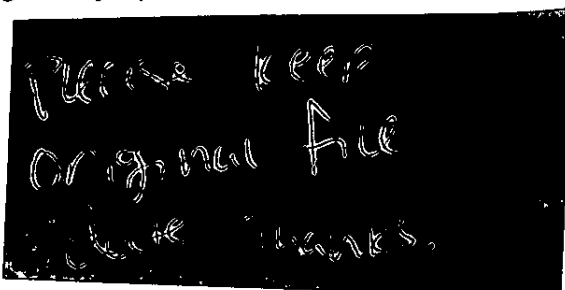 please keep
original file
thanks.